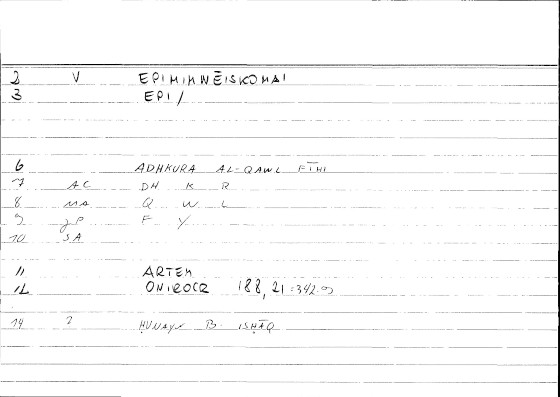 2 V EPIMIMNĒISKOMAI
3 EPI/
6 ADHKURA AL-QAWL FĪHI
7 AC DH K R
8 MA Q W L
9 JP F Y
10 SA
11 ARTEM
12 ONIROCR 188, 21 = 342.9
14 2 ḤUNAYN B. ISḤĀQ